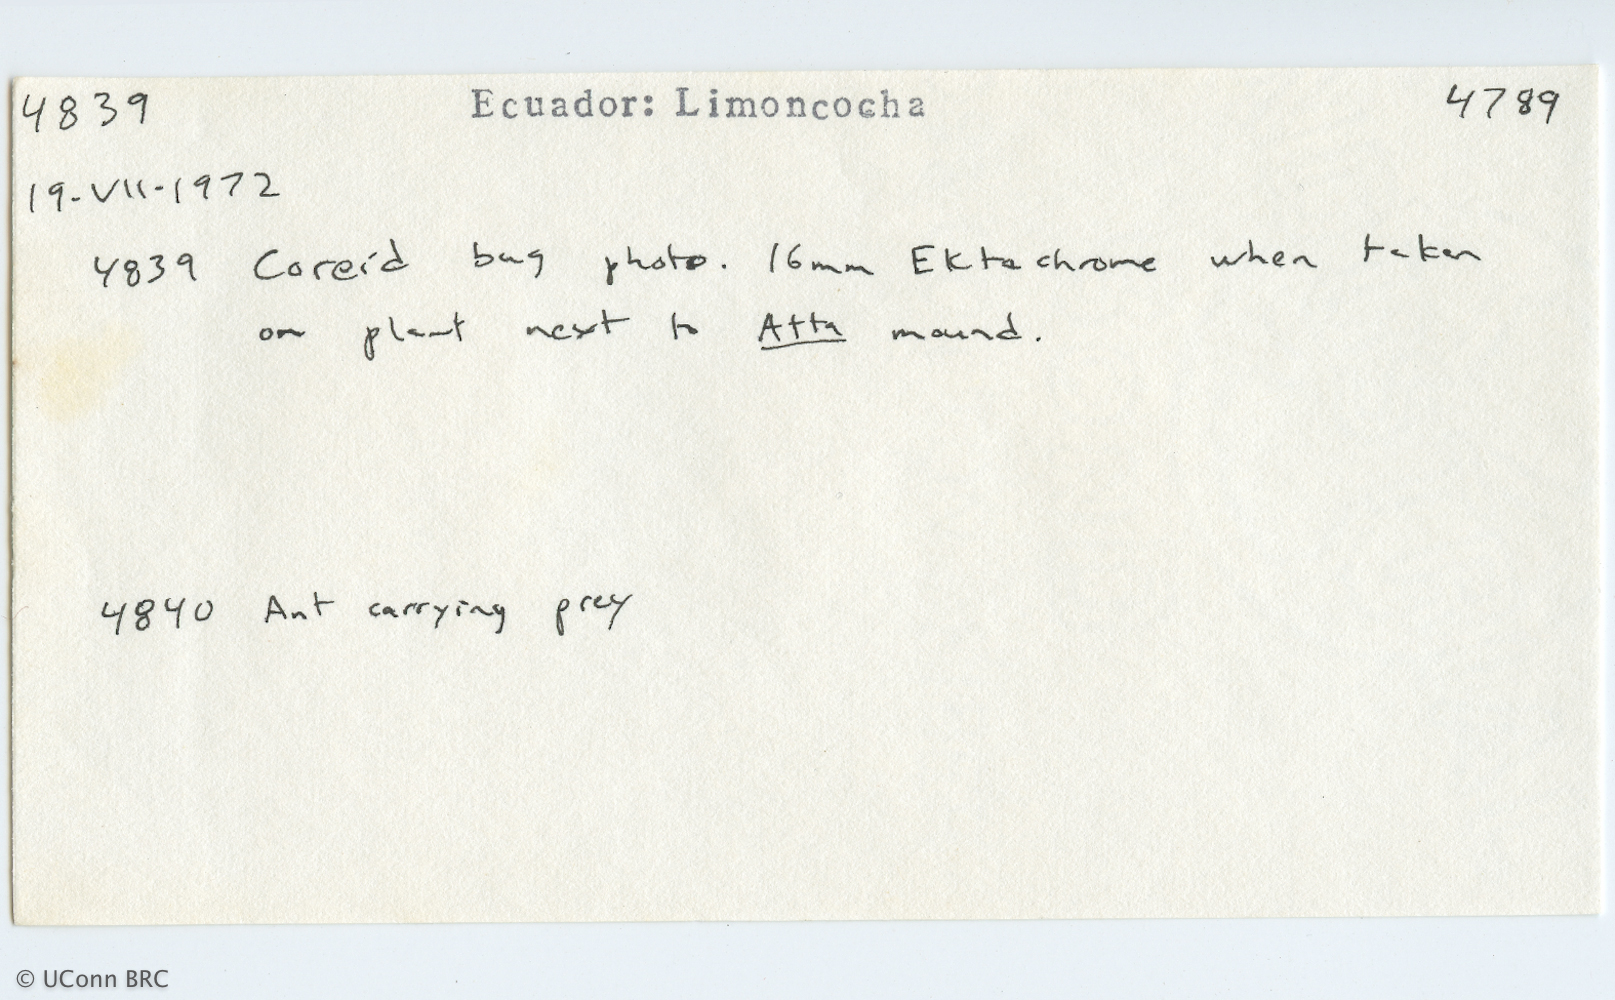 4839 Ecuador: Limoncocha 4789
19-VII-1972
4839 Coreid bug photo. 16mm Ektachrome when taken
on plant next to Atta mound.
4840 Ant carrying prey
© UConn BRC